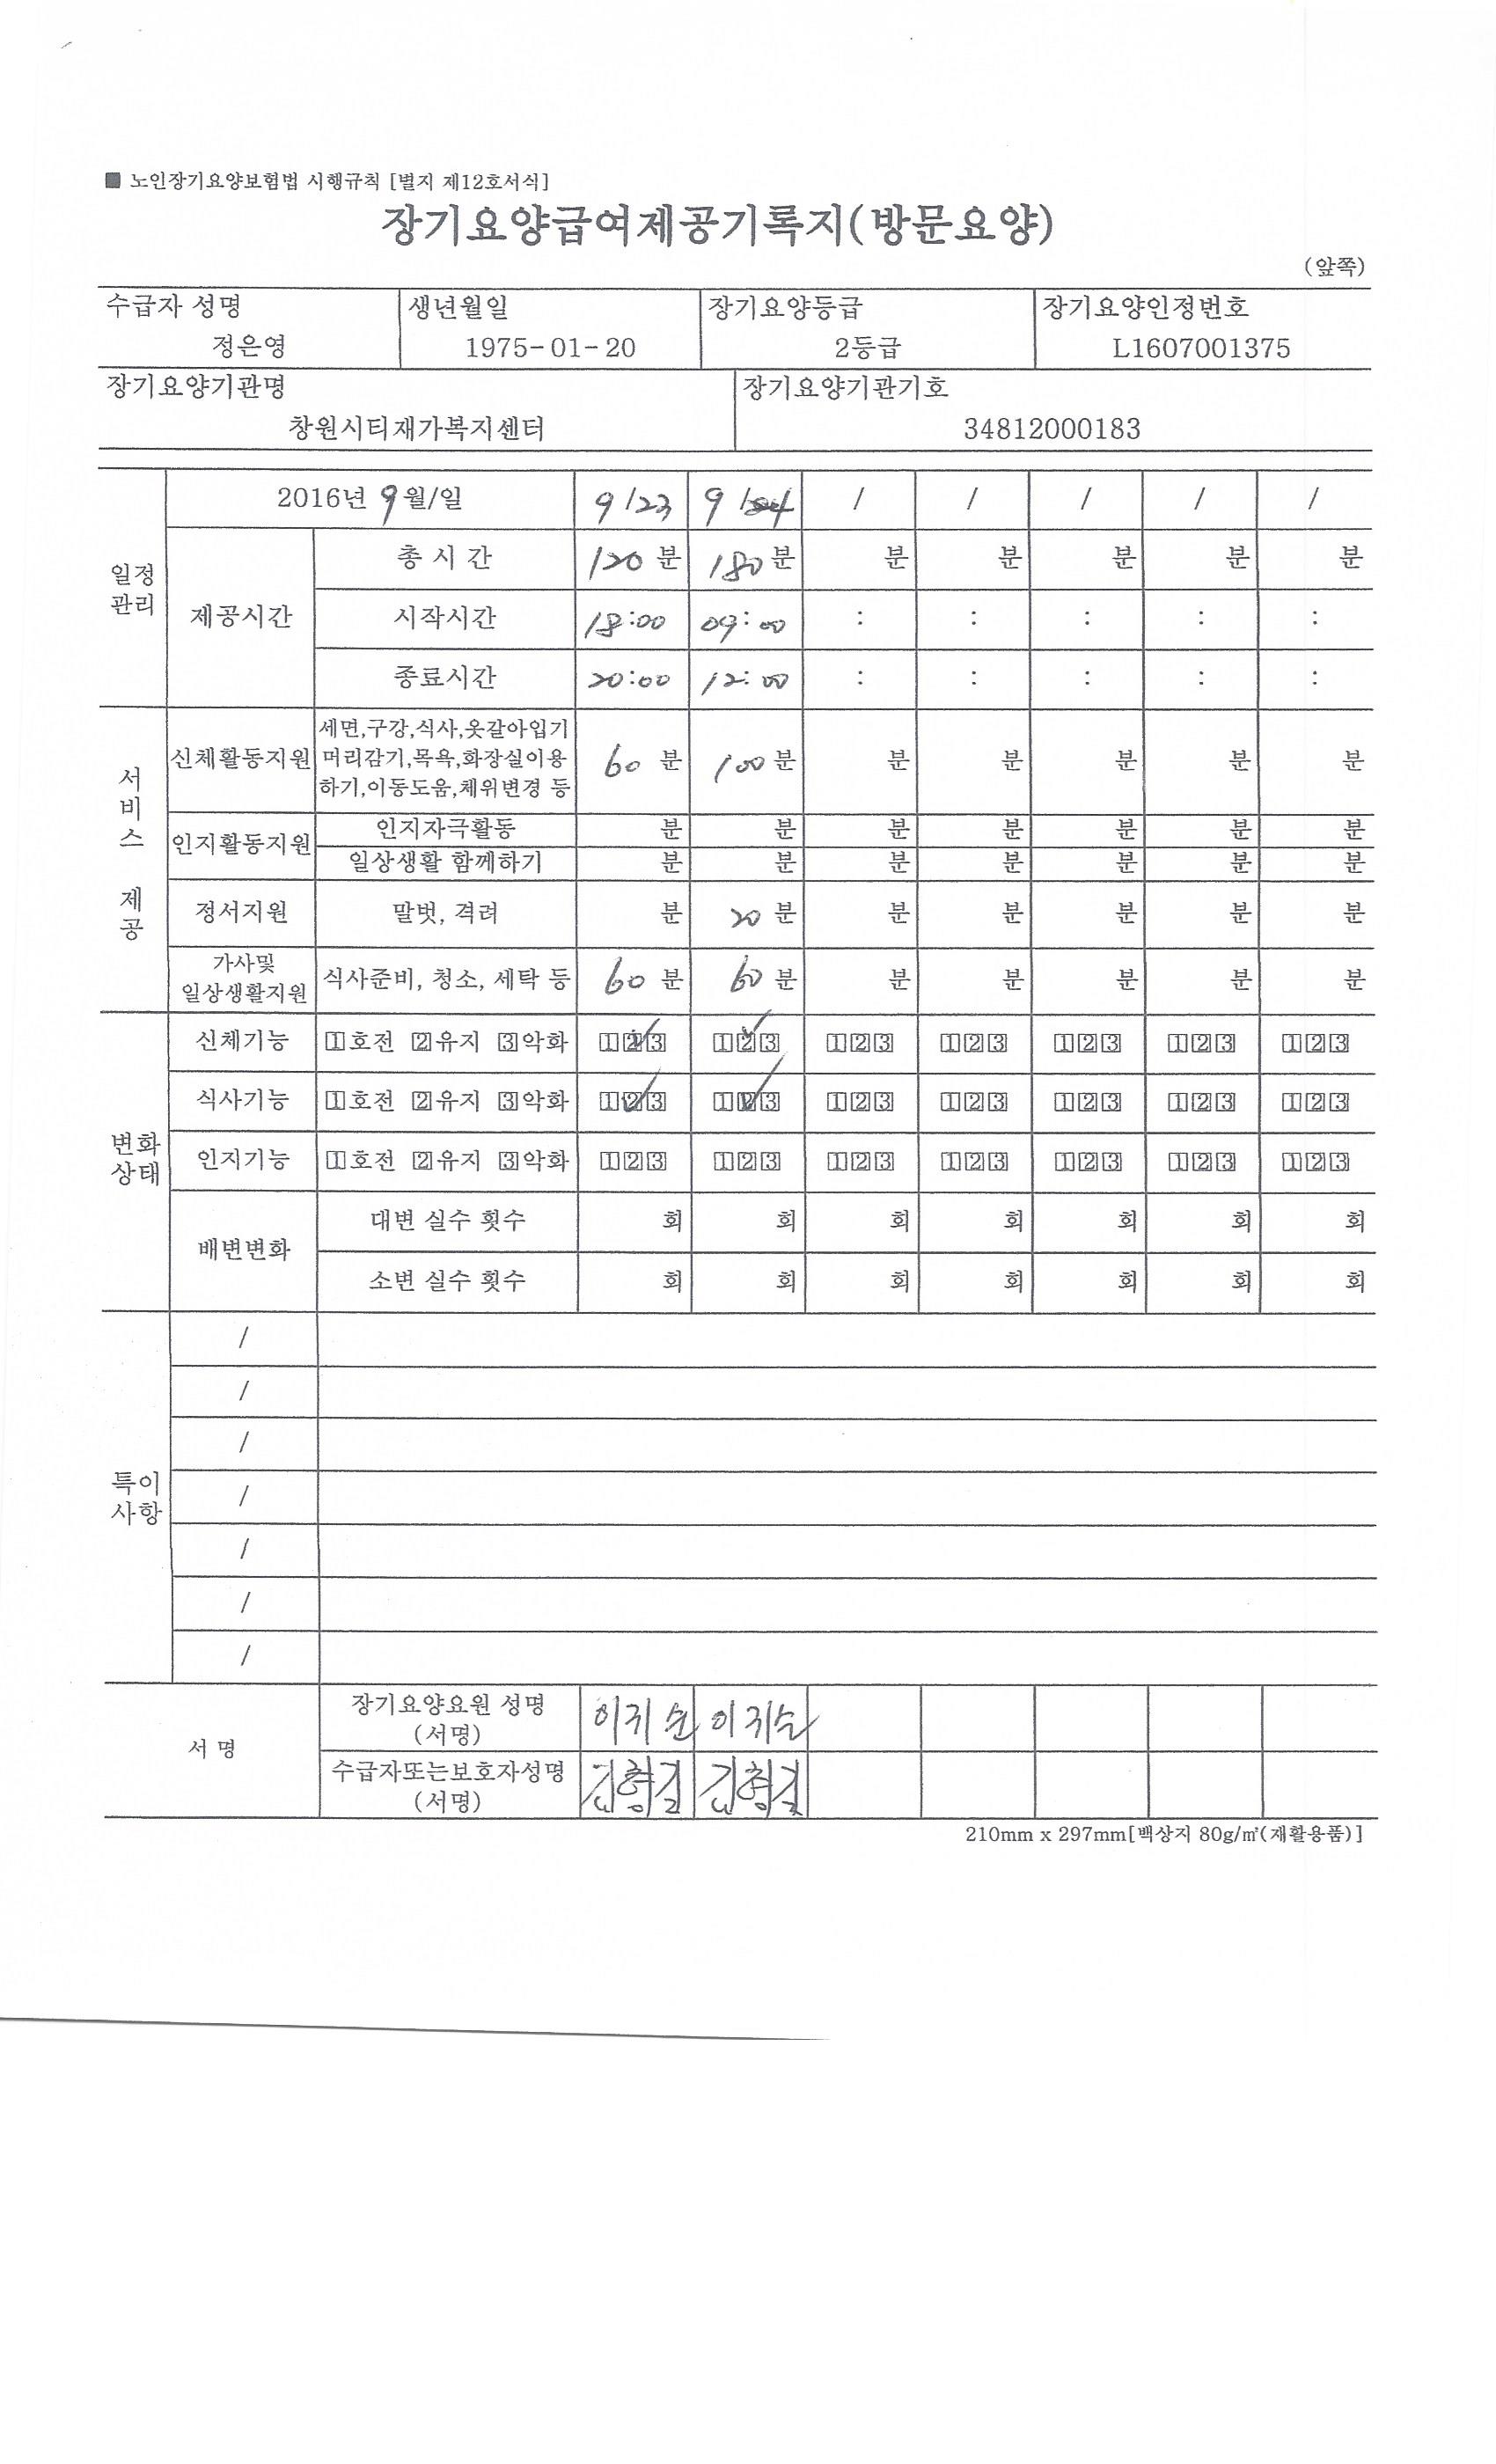 ■ 노인장기요양보험법 시행규칙 [별지 제12호서식]
장기요양급여제공기록지(방문요양)
(앞쪽)
수급자 성명 생년월일 장기요양등급 장기요양인정번호
정은영 1975-01-20 2등급 L1607001375
장기요양기관명 장기요양기관기호
창원시티재가복지센터 34812000183
일정관리
2016년 9월/일 9/23 9/24 / / / / /
제공시간
총 시 간 120 분 180 분 분 분 분 분 분
시작시간 18:00 09:00 : : : : :
종료시간 20:00 12:00 : : : : :
서비스 제공
신체활동지원
세면,구강,식사,옷갈아입기
머리감기,목욕,화장실이용 60 분 100 분 분 분 분 분 분
하기,이동도움,체위변경 등
인지활동지원
인지자극활동 분 분 분 분 분 분 분
일상생활 함께하기 분 분 분 분 분 분 분
정서지원 말벗, 격려 분 20 분 분 분 분 분 분
가사및
일상생활지원 식사준비, 청소, 세탁 등 60 분 60 분 분 분 분 분 분
변화상태
신체기능 1호전 2유지 3악화 123 123 123 123 123 123 123
식사기능 1호전 2유지 3악화 123 123 123 123 123 123 123
인지기능 1호전 2유지 3악화 123 123 123 123 123 123 123
배변변화
대변 실수 횟수 회 회 회 회 회 회 회
소변 실수 횟수 회 회 회 회 회 회 회
특이사항
/
/
/
/
/
/
/
서 명
장기요양요원 성명
(서명)
수급자또는보호자성명
(서명)
210mm x 297mm[백상지 80g/㎡(재활용품)]